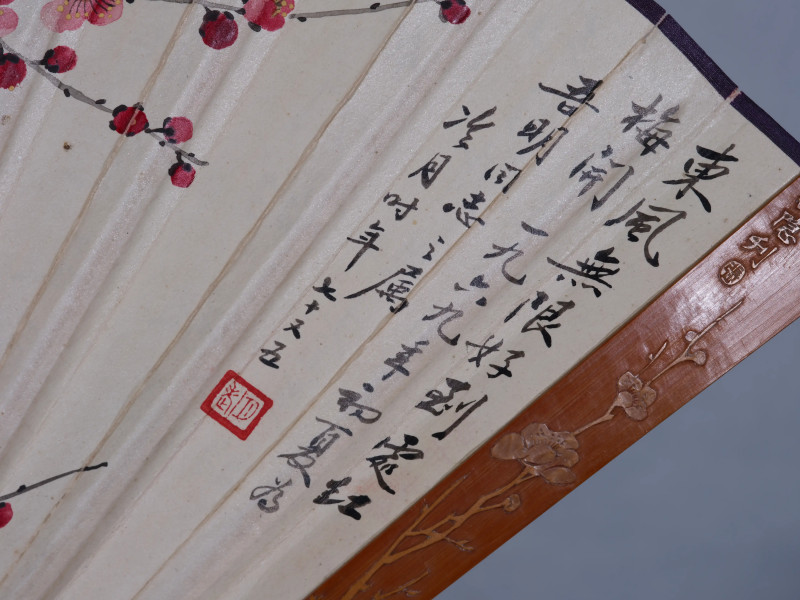 東風無限好到處紅
梅開 一九六九年初夏為
吾明同志之屬
冷月时年七十又五